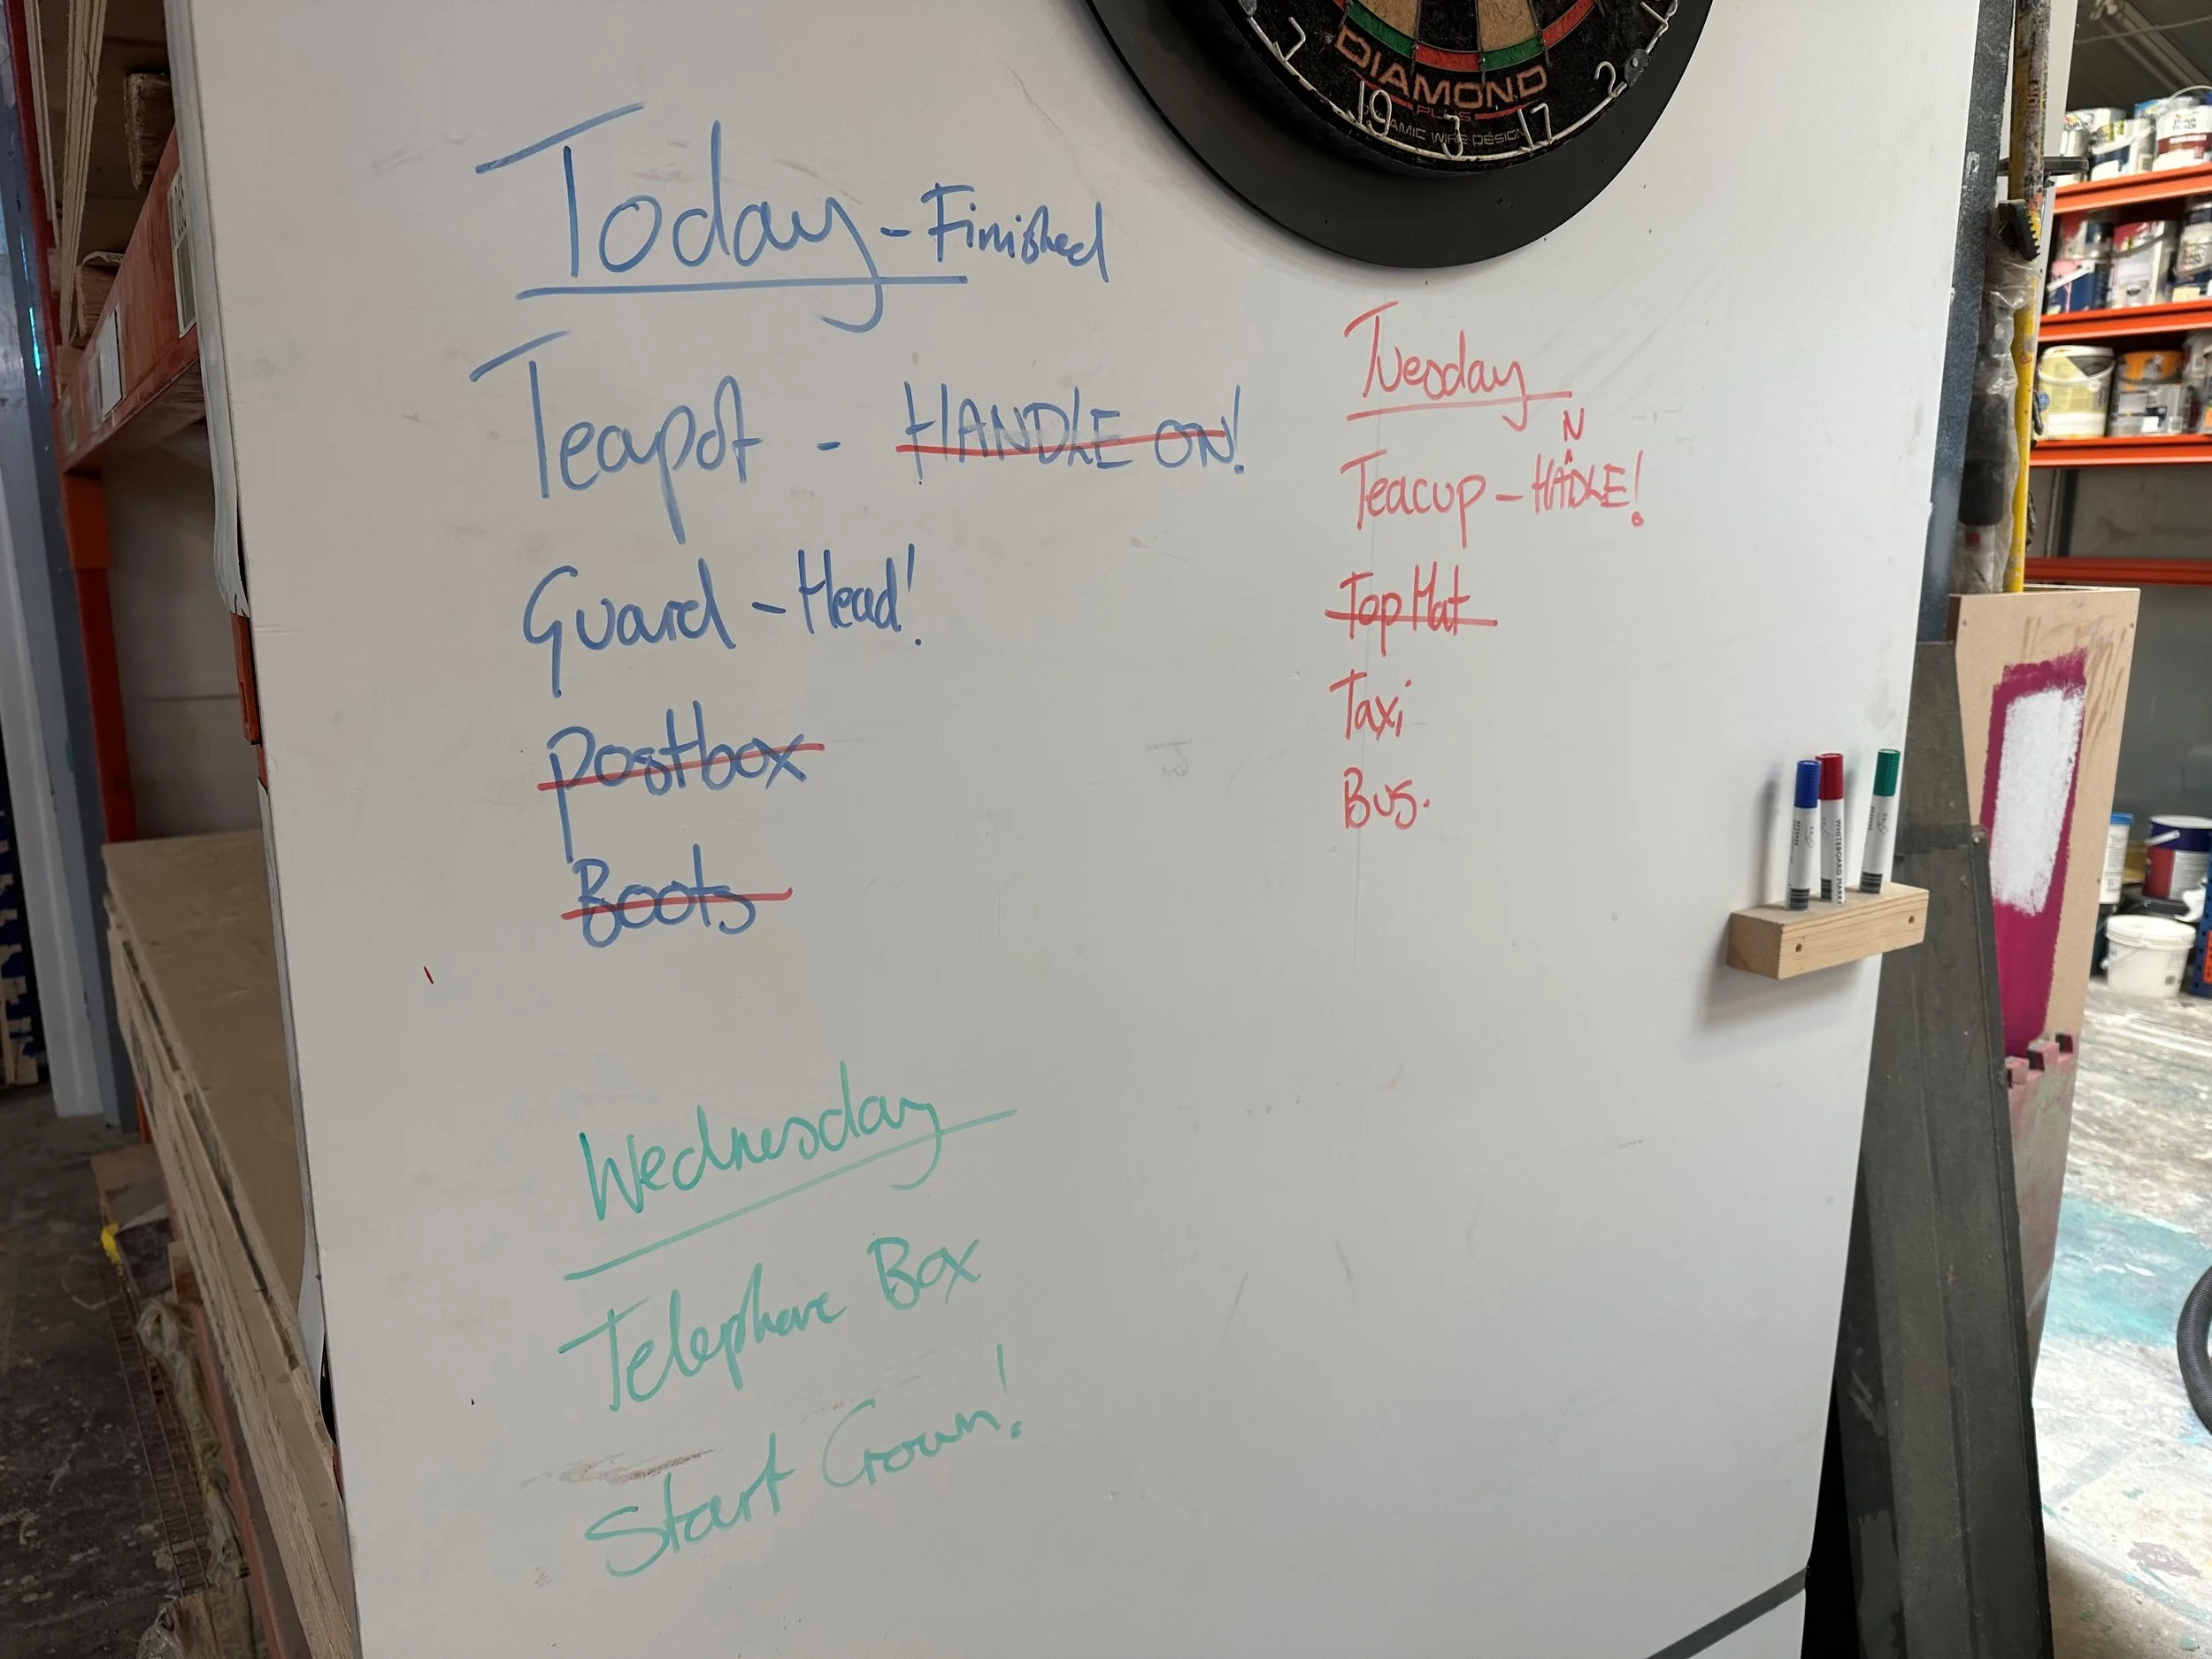 DIAMOND
PLUS
19 3 17 2
Today - Finished
Teapot - HANDLE ON!
Guard - Head!
Postbox
Boots
Tuesday
N
Teacup - HADLE!
Top Hat
Taxi
Bus.
WHITEBOARD MARKER
Wednesday
Telephone Box
Start Crown!